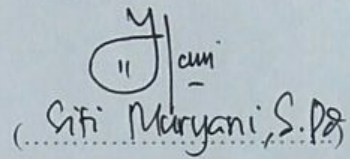 (Siti Maryani, S.Pd)